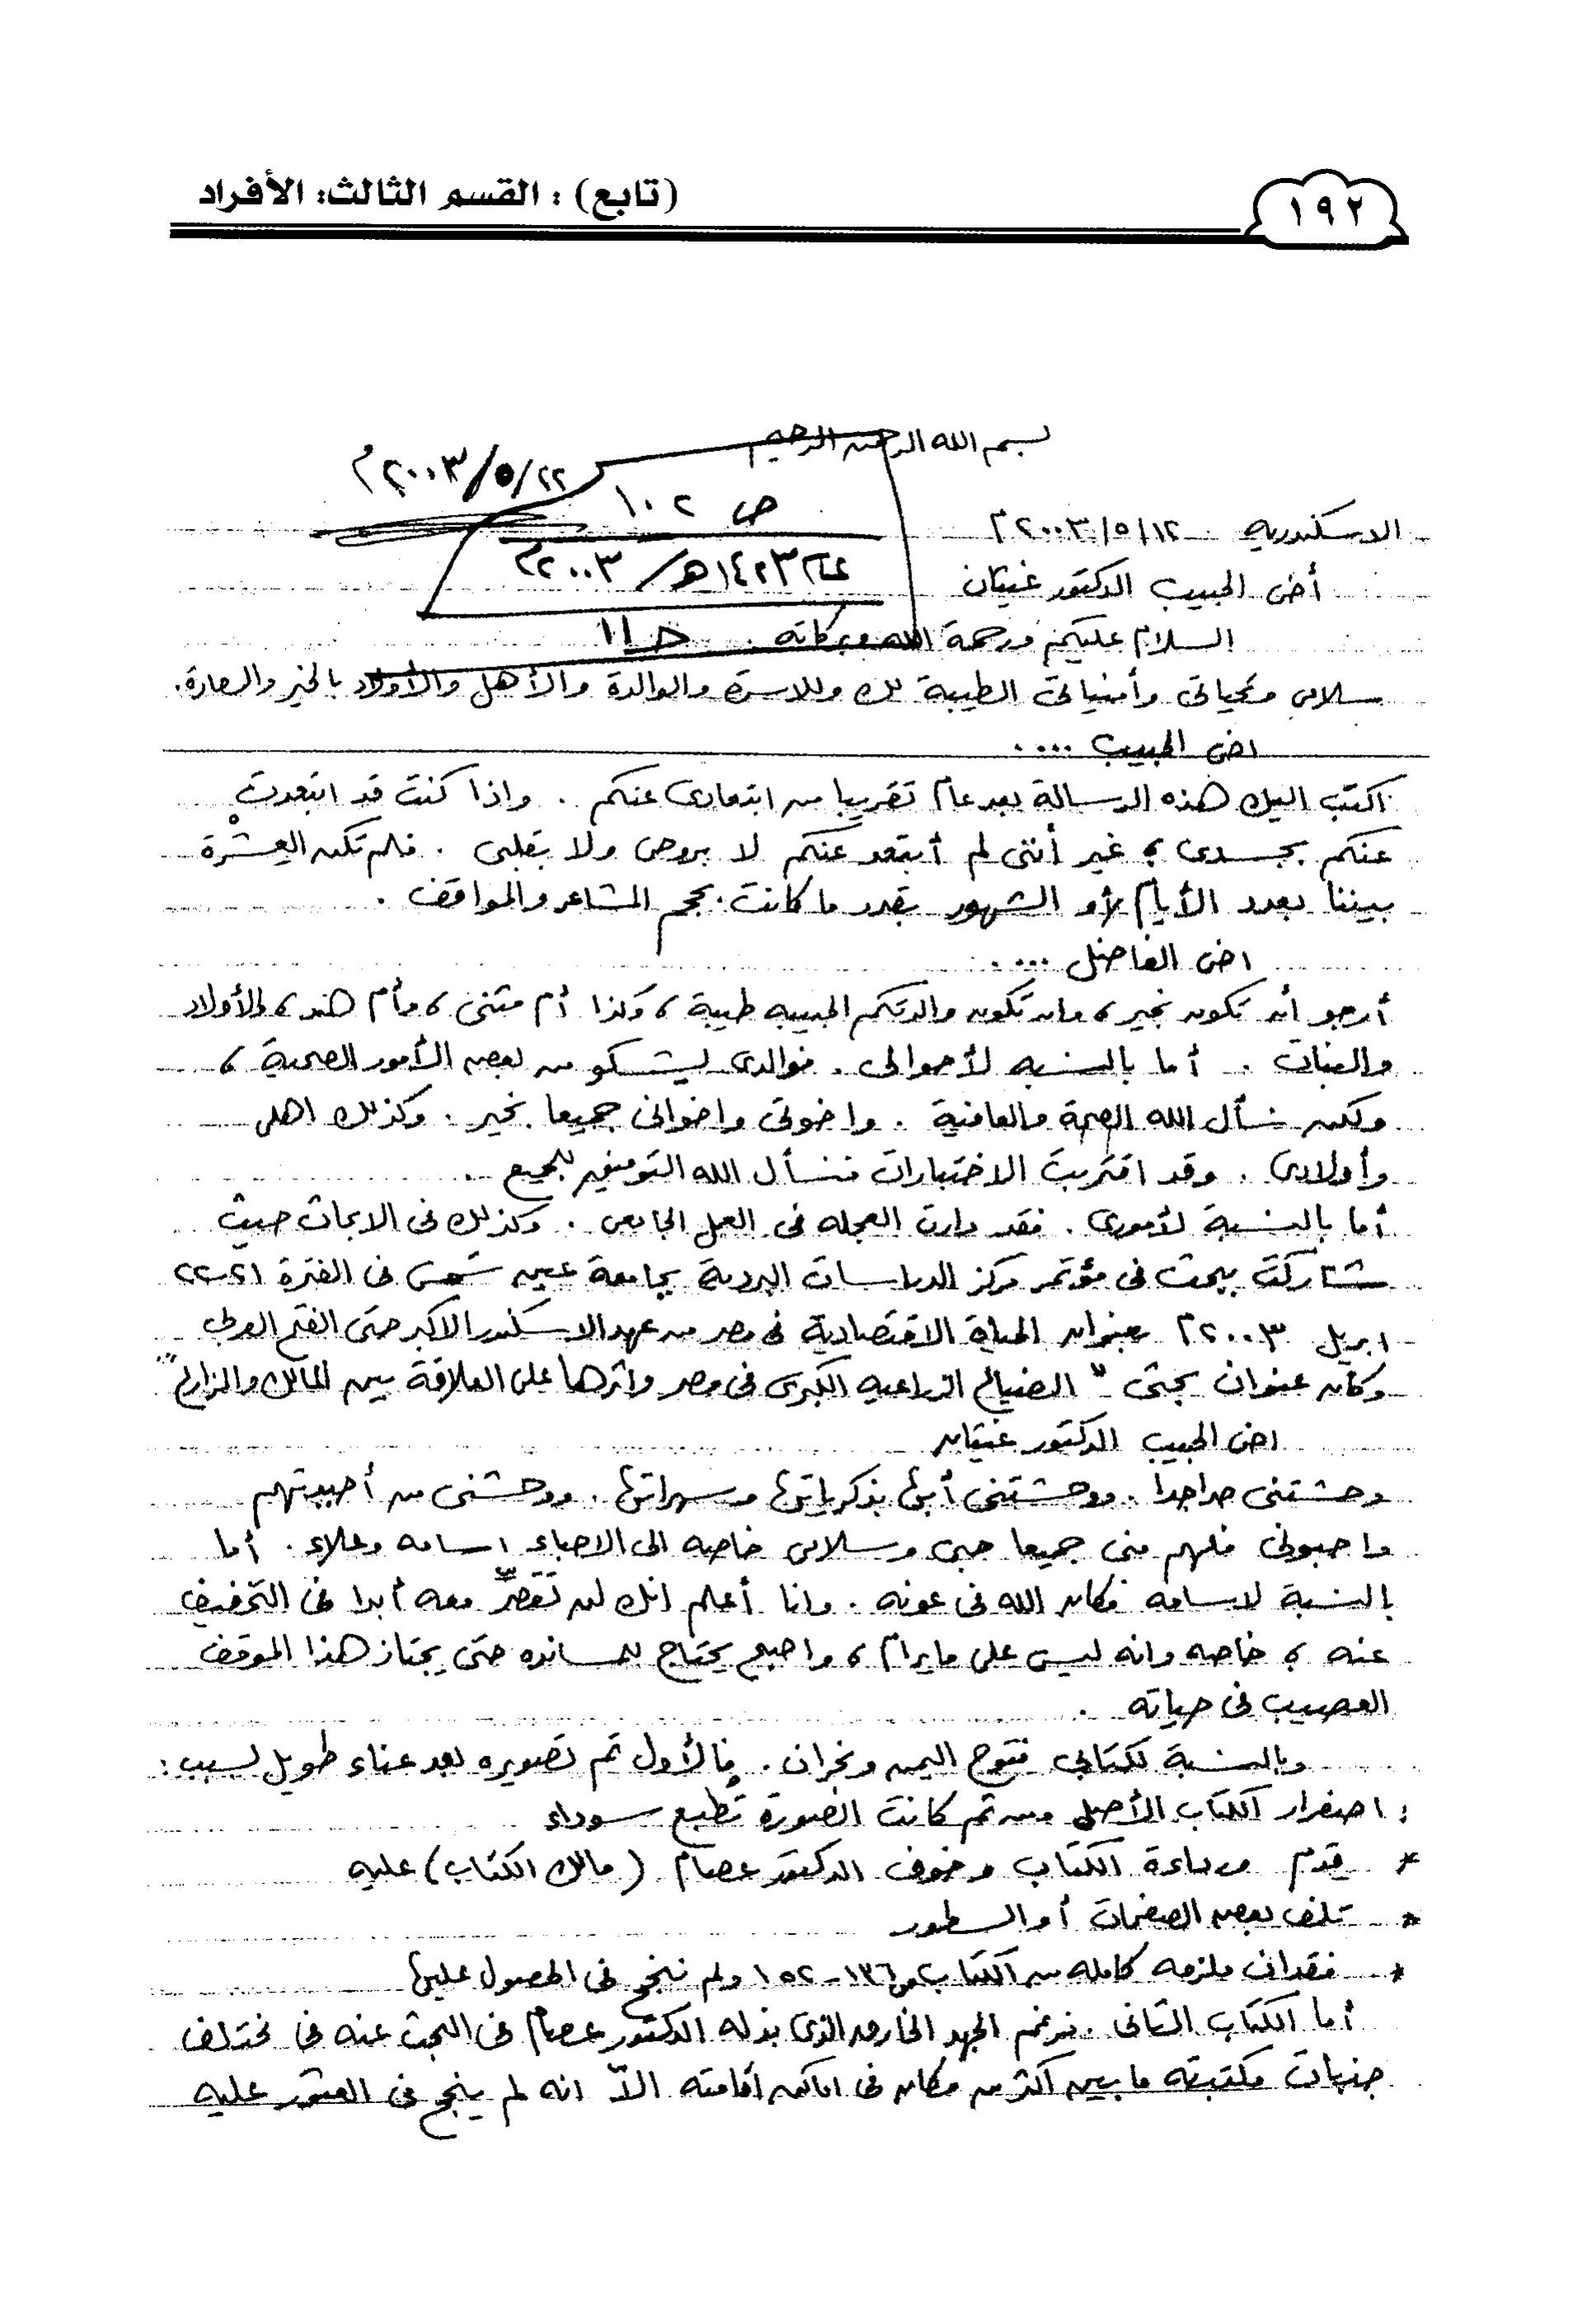 ١٩٢
(تابع) : القسم الثالث: الأفراد
بسم الله الرحمن الرحيم
٢٢/٥/٢٠٠٣م
ص ١٠٢
عام ١٤٢٣هـ/٢٠٠٣م
الاسكندرية ١٢/٥/٢٠٠٣م
أخى الحبيب الدكتور غيثان
السلام عليكم ورحمة الله وبركاته .
سلامى وتحياتى وأمنياتى الطيبة لك وللاسرة والوالدة والأهل والأولاد بالخير والسعادة.
اخى الحبيب ....
اكتب اليك هذه الرسالة بعد عام تقريبا من ابتعادى عنكم . واذا كنت قد ابتعدتْ
عنكم بجسدى ؛ غير أننى لم أبتعد عنكم لا بروحى ولا بقلبى . فلم تكن العِشْرة
بيننا بعدد الأيام أو الشهور بقدر ما كانت بحجم المشاعر والمواقف .
اخى الفاضل ....
أرجو أن تكون بخير ، وان تكون والدتكم الحبيبه طيبة ، وكذا أم مثنى ، وأم هند ، والأولاد
والبنات . أما بالنسبه لأحوالى . فوالدى ليشكو من بعض الأمور الصحية ،
ولكن نسأل الله الصحة والعافية . واخوتى واخوانى جميعا بخير . وكذلك اهلى
وأولادى . وقد اقتربت الاختبارات فنسأل الله التوفيق للجميع .
أما بالنسبة لأمورى . فقد دارت العجله فى العمل الجامعى . وكذلك فى الابحاث حيث
شاركت ببحث فى مؤتمر مركز الدراسات البردية بجامعة عين شمس فى الفترة ٢١-٢٢
ابريل ٢٠٠٣م بعنوان الحياة الاقتصادية فى مصر من عهد الاسكندر الاكبر حتى الفتح العربى
وكان عنوان بحثى " الضياع الزراعيه الكبرى فى مصر واثرها على العلاقة بين المالك والزارع"
اخى الحبيب الدكتور غيثان
وحشتنى جدا جدا . ووحشتنى أبها بذكرياتها وسهراتها . ووحشنى من أحببتهم
واحبونى فلهم منى جميعا حبى وسلامى خاصه الى الاحباء اسامه وعلاء . أما
بالنسبة لاسامه فكان الله فى عونه . وانا أعلم انك لن تقصرّ معه أبدا فى التخفيف
عنه ؛ خاصه وانه ليس على مايرام ، واصبح يحتاج لمسانده حتى يجتاز هذا الموقف
العصيب فى حياته .
وبالنسبة لكتابى فتوح اليمن ونجران . فالأول تم تصويره بعد عناء طويل لسبب :
: اصفرار الكتاب الأصلى ومن ثم كانت الصورة تُطبع سوداء
* قدم ورداءة الكتاب وخوف الدكتور عصام (مالك الكتاب) عليه
* تلف بعض الصفحات أو السطور
* فقدان ملزمه كامله من الكتاب ص١٣٦-١٥٢ ولم ننجح فى الحصول عليها
أما الكتاب الثانى . فبرغم الجهد الخارق الذى بذله الدكتور عصام فى البحث عنه فى مختلف
جنبات مكتبته ما بين أكثر من مكان فى اماكن اقامته الاّ انه لم ينجح فى العثور عليه